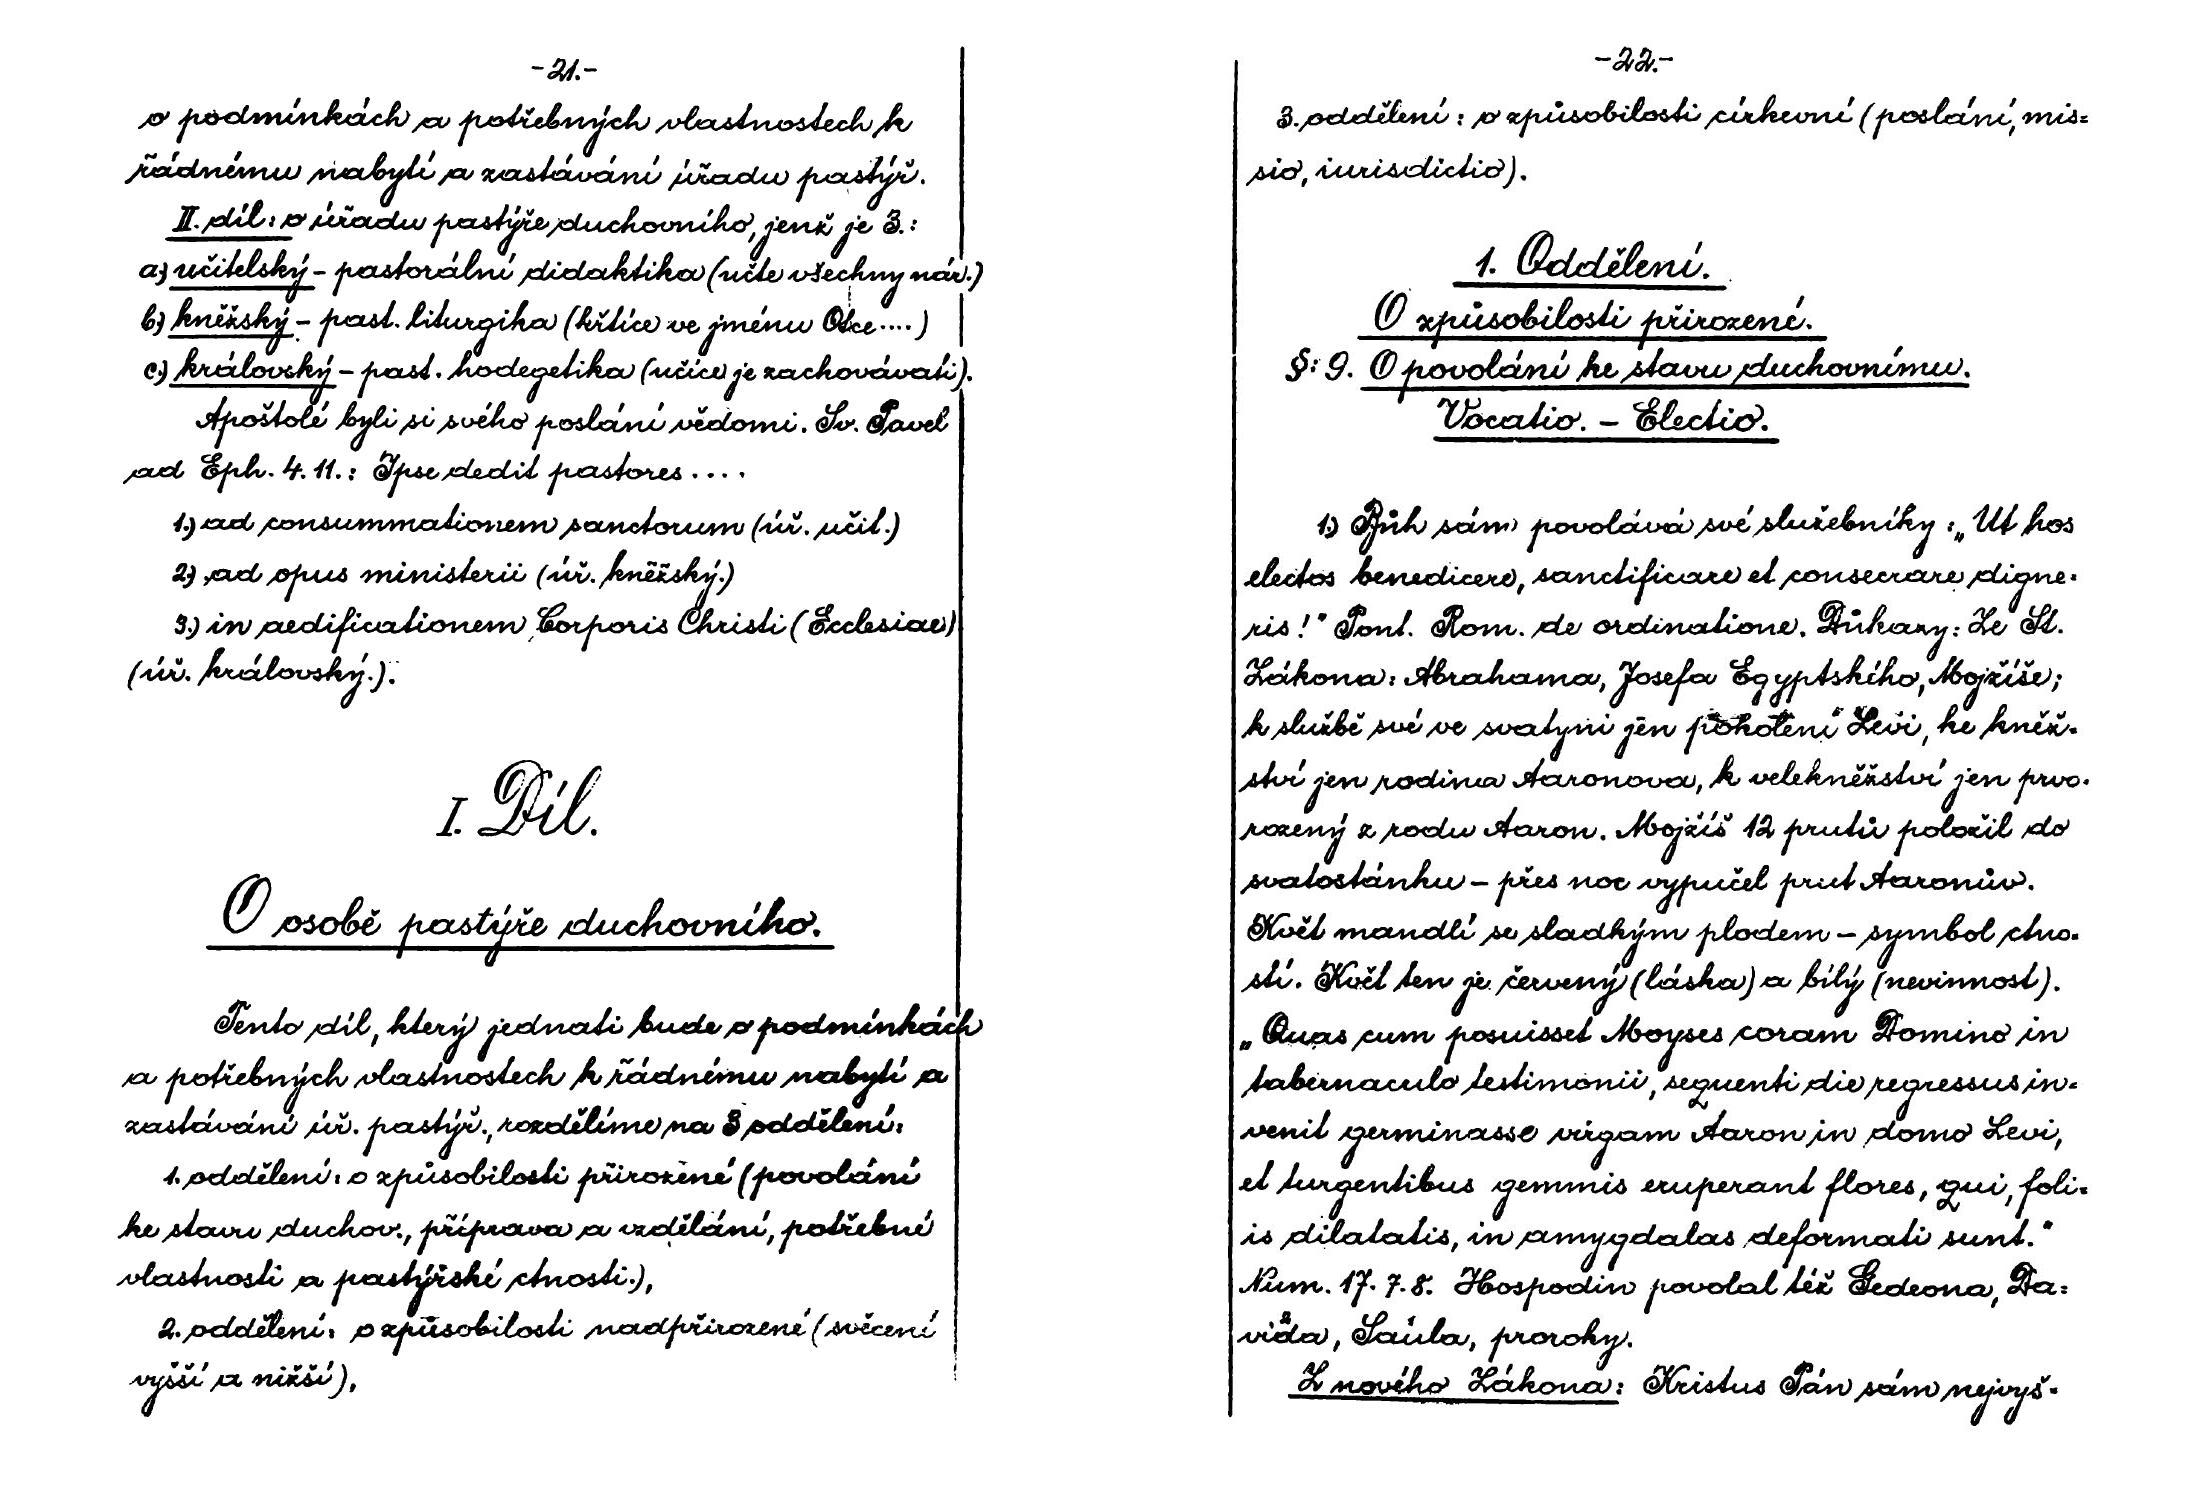 -21.-
o podmínkách a potřebných vlastnostech k
řádnému nabytí a zastávání úřadu pastýř.
II. díl: o úřadu pastýře duchovního, jenž je 3.:
a.) učitelský - pastorální didaktika (učte všechny nár.)
b.) kněžský - past. liturgika (křtíce ve jménu Otce....)
c.) královský - past. hodegetika (učíce je zachovávati).
Apoštolé byli si svého poslání vědomi. Sv. Pavel
ad Eph. 4. 11.: Ipse dedit pastores....
1.) ad consummationem sanctorum (úř. učit.)
2.) ad opus ministerii (úř. kněžský.)
3.) in aedificationem Corporis Christi (Ecclesiae)
(úř. královský.).
I. Díl.
O osobě pastýře duchovního.
Tento díl, který jednati bude o podmínkách
a potřebných vlastnostech k řádnému nabytí a
zastávání úř. pastýř., rozdělíme na 3 oddělení:
1. oddělení: o způsobilosti přirozené (povolání
ke stavu duchov., příprava a vzdělání, potřebné
vlastnosti a pastýřské ctnosti.),
2. oddělení: o způsobilosti nadpřirozené (svěcení
vyšší a nižší),
-22.-
3. oddělení: o způsobilosti církevní (poslání, mis=
sio, iurisdictio).
1. Oddělení.
O způsobilosti přirozené.
§: 9. O povolání ke stavu duchovnímu.
Vocatio. - Electio.
1.) Bůh sám povolává své služebníky: „Ut hos
electos benedicere, sanctificare et consecrare digne-
ris!" Pont. Rom. de ordinatione. Důkazy: Ze St.
Zákona: Abrahama, Josefa Egyptského, Mojžíše;
k službě své ve svatyni jen pokolení Levi, ke kněž-
ství jen rodina Aaronova, k velekněžství jen prvo-
rozený z rodu Aaron. Mojžíš 12 prutů položil do
svatostánku - přes noc vypučel prut Aaronův.
Květ mandlí se sladkým plodem - symbol ctno-
stí. Květ ten je červený (láska) a bílý (nevinnost).
„Quas cum posuisset Moyses coram Domino in
tabernaculo testimonii, sequenti die regressus in-
venit germinasse virgam Aaron in domo Levi,
et turgentibus gemmis eruperant flores, qui, foli-
is dilatatis, in amygdalas deformati sunt."
Num. 17. 7. 8. Hospodin povolal též Gedeona, Da=
vida, Saula, proroky.
Z nového Zákona: Kristus Pán sám nejvyš-